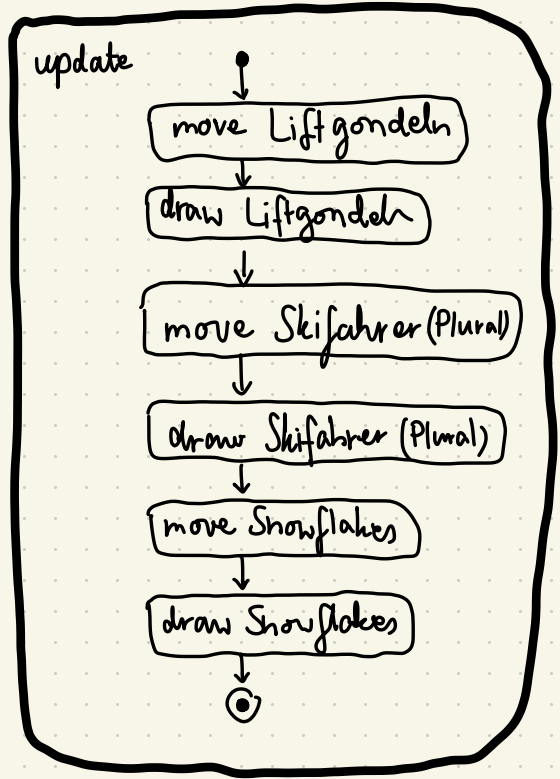 update
move Liftgondeln
draw Liftgondeln
move Skifahrer (Plural)
draw Skifahrer (Plural)
move Snowflakes
draw Snowflakes